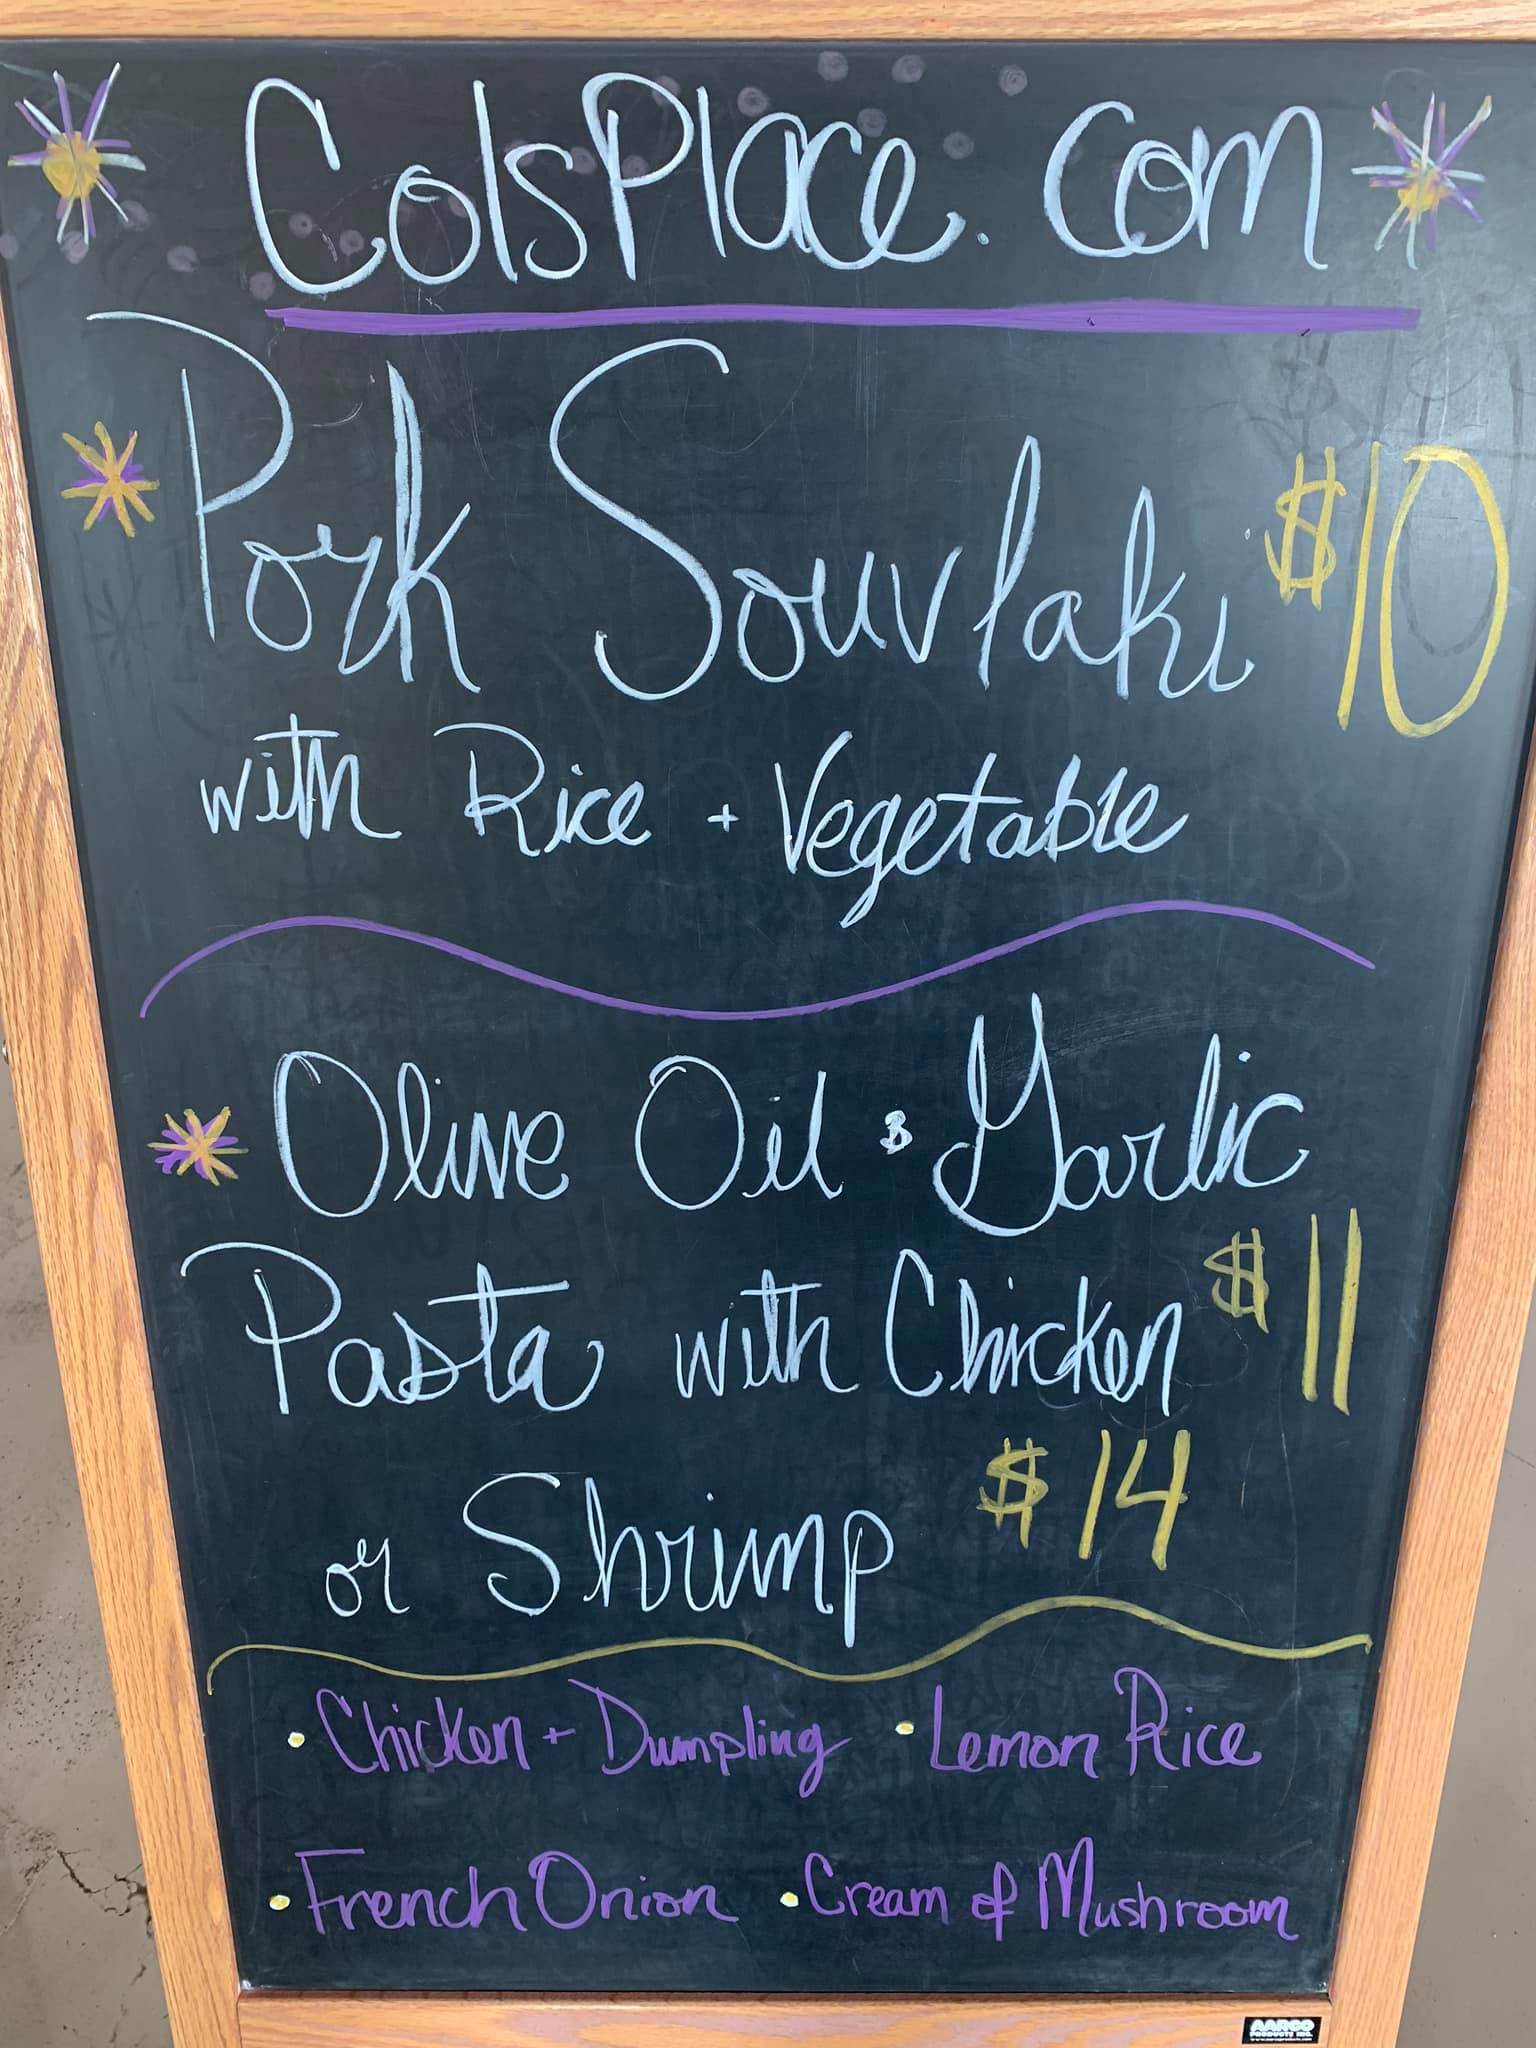 ColsPlace.com
Pork Souvlaki $10
with Rice + Vegetable
Olive Oil & Garlic
Pasta with Chicken $11
or Shrimp $14
• Chicken + Dumpling • Lemon Rice
• French Onion • Cream of Mushroom
AARCO
PRODUCTS INC.